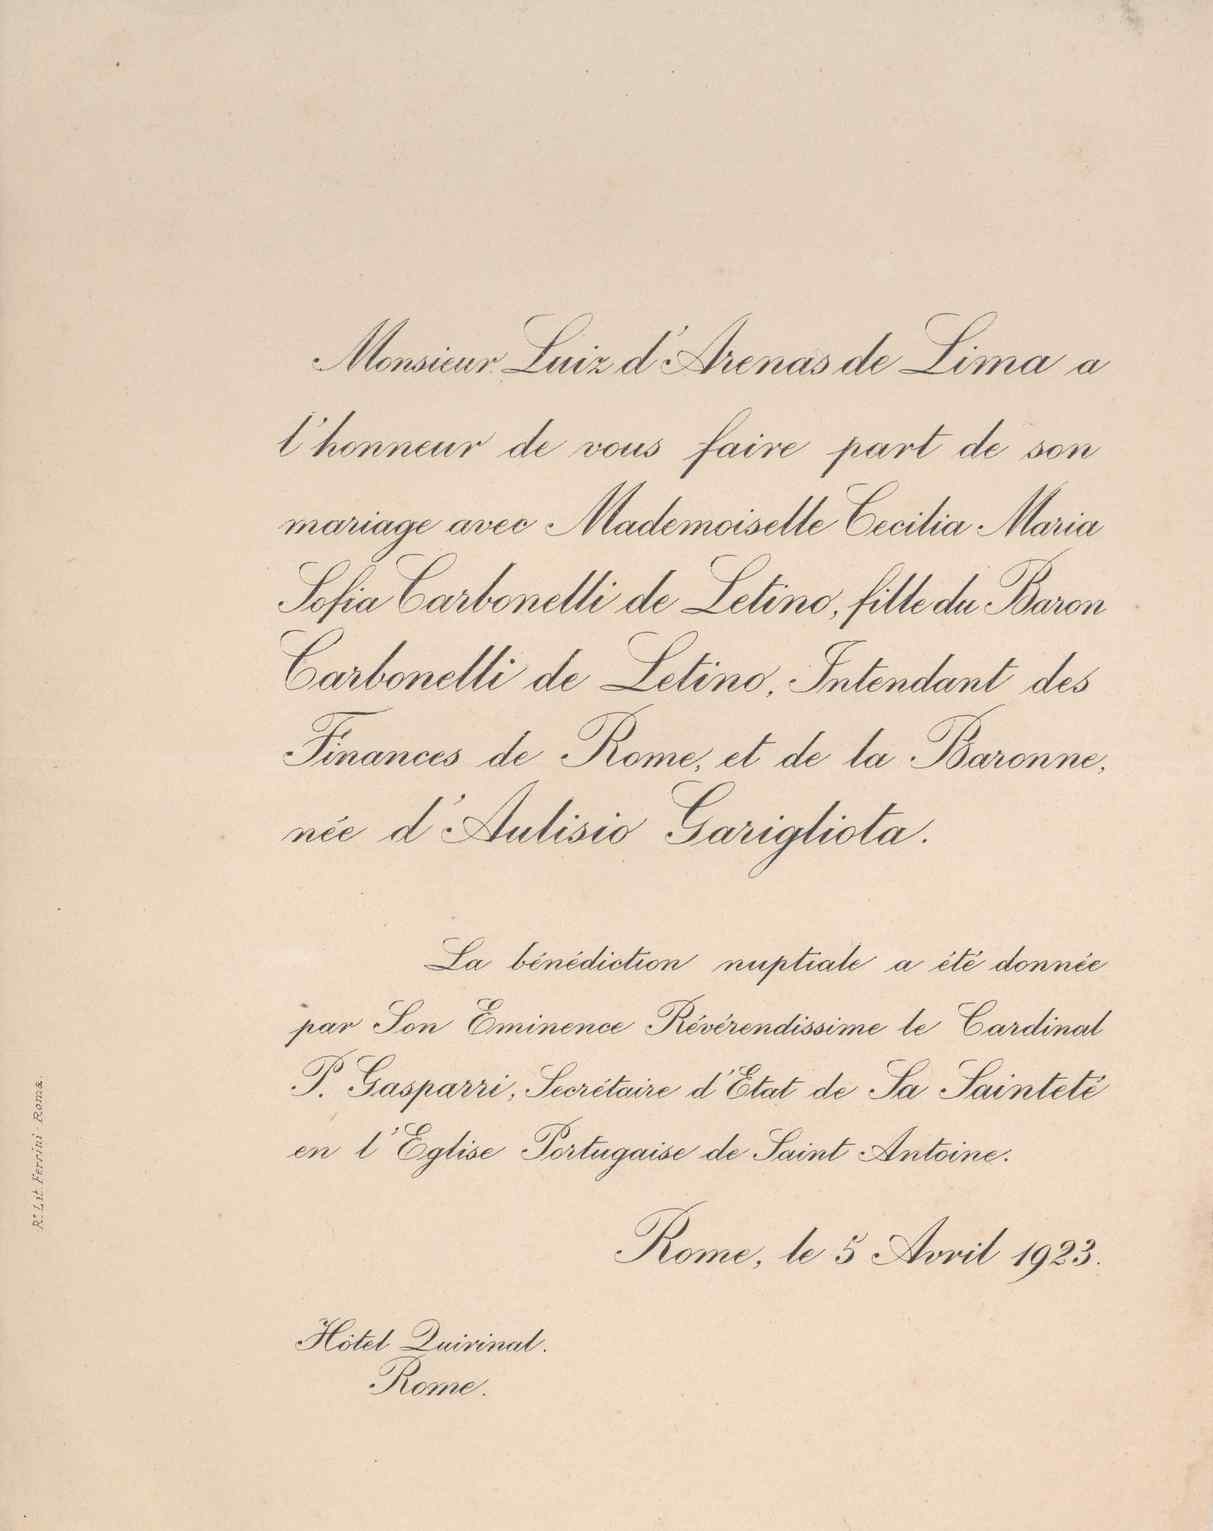 Monsieur Luiz d'Arenas de Lima a
l'honneur de vous faire part de son
mariage avec Mademoiselle Cecilia Maria
Sofia Carbonelli de Letino, fille du Baron
Carbonelli de Letino, Intendant des
Finances de Rome, et de la Baronne,
née d'Aulisio Garigliota.
La bénédiction nuptiale a été donnée
par Son Eminence Révérendissime le Cardinal
P. Gasparri, Secrétaire d'Etat de Sa Sainteté
en l'Eglise Portugaise de Saint Antoine.
Rome, le 5 Avril 1923.
Hôtel Quirinal.
Rome.
Rta Lit. Ferrini Roma.